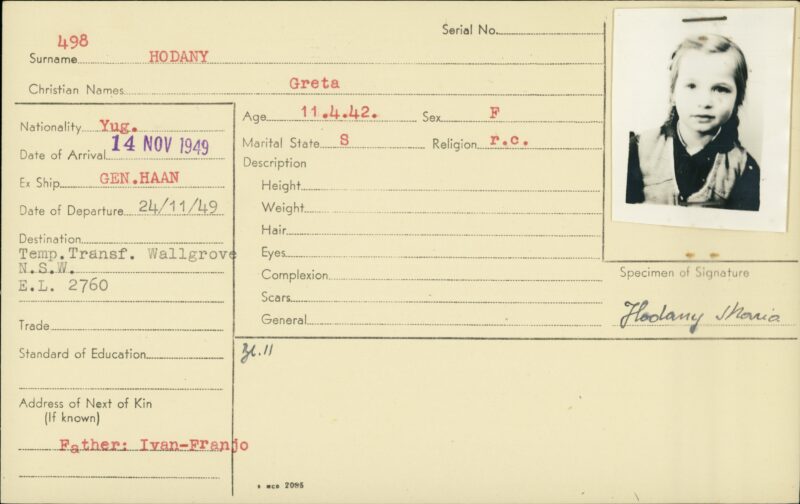 Serial No.
498
Surname HODANY
Christian Names Greta
Nationality Yug.
Date of Arrival 14 NOV 1949
Ex Ship GEN.HAAN
Date of Departure 24/11/49
Destination
Temp.Transf. Wallgrove
N.S.W.
E.L. 2760
Trade
Standard of Education
Address of Next of Kin
(If known)
Father: Ivan-Franjo
Age 11.4.42. Sex F
Marital State S Religion r.c.
Description
Height
Weight
Hair
Eyes
Complexion
Scars
General
Specimen of Signature
Hodany Maria
MCO 2095